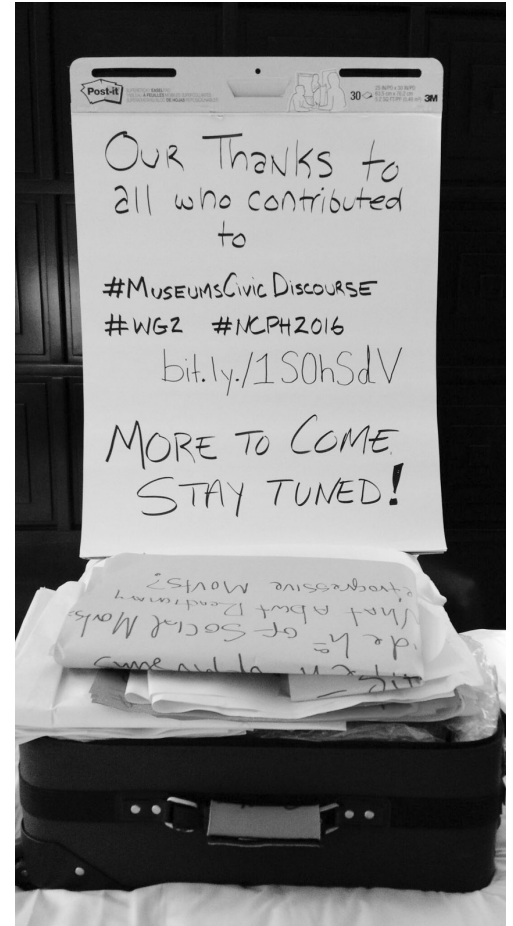 Post-it
30
3M
OUR Thanks to
all who contributed
to
#MUSEUMSCivic DISCOURSE
#WG2 #NCPH2016
bit.ly./1SOhSdV
MORE TO COME.
STAY TUNED!
of Social Movts.
What About Reactionary
Movts?